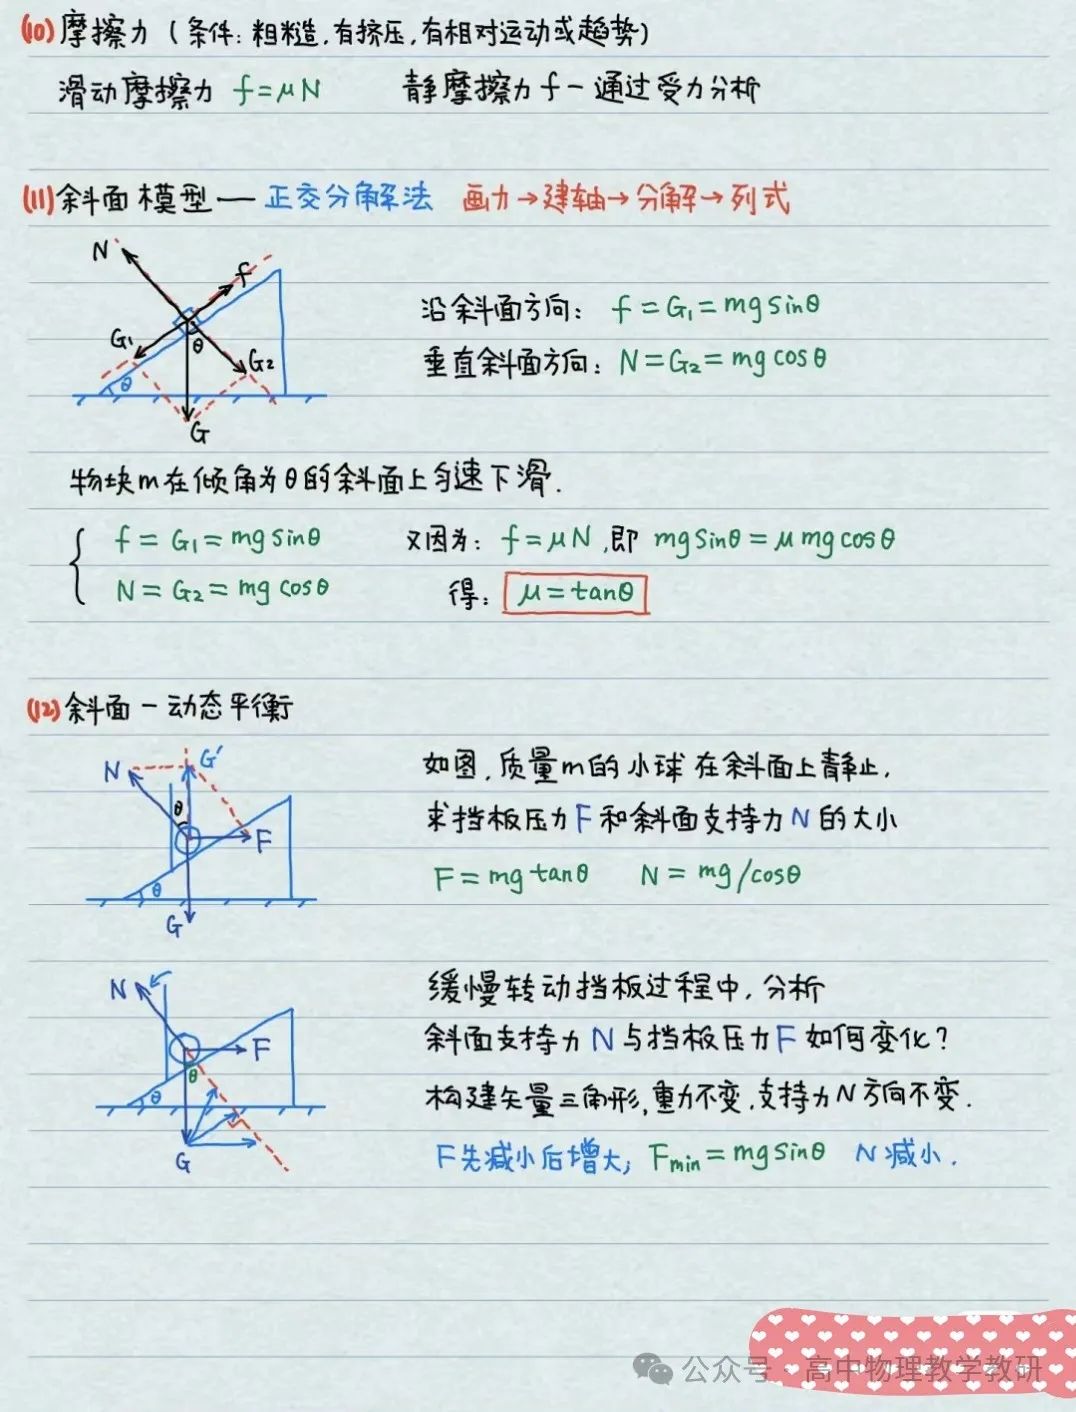 (10) 摩擦力 (条件: 粗糙, 有挤压, 有相对运动或趋势)
滑动摩擦力 f=μN 静摩擦力 f-通过受力分析
(11) 斜面模型—正交分解法 画力→建轴→分解→列式
N
f
G₁
θ
G₂
θ
G
沿斜面方向: f=G₁=mgsinθ
垂直斜面方向: N=G₂=mgcosθ
物块m在倾角为θ的斜面上匀速下滑.
f=G₁=mgsinθ 又因为: f=μN, 即 mgsinθ=μmgcosθ
N=G₂=mgcosθ 得: μ=tanθ
(12) 斜面-动态平衡
N
G′
θ
F
θ
G
如图, 质量m的小球在斜面上静止,
求挡板压力F和斜面支持力N的大小
F=mgtanθ N=mg/cosθ
N
F
θ
θ
G
缓慢转动挡板过程中, 分析
斜面支持力N与挡板压力F如何变化?
构建矢量三角形, 重力不变, 支持力N方向不变.
F先减小后增大; Fmin=mgsinθ N减小.
公众号·高中物理教学教研